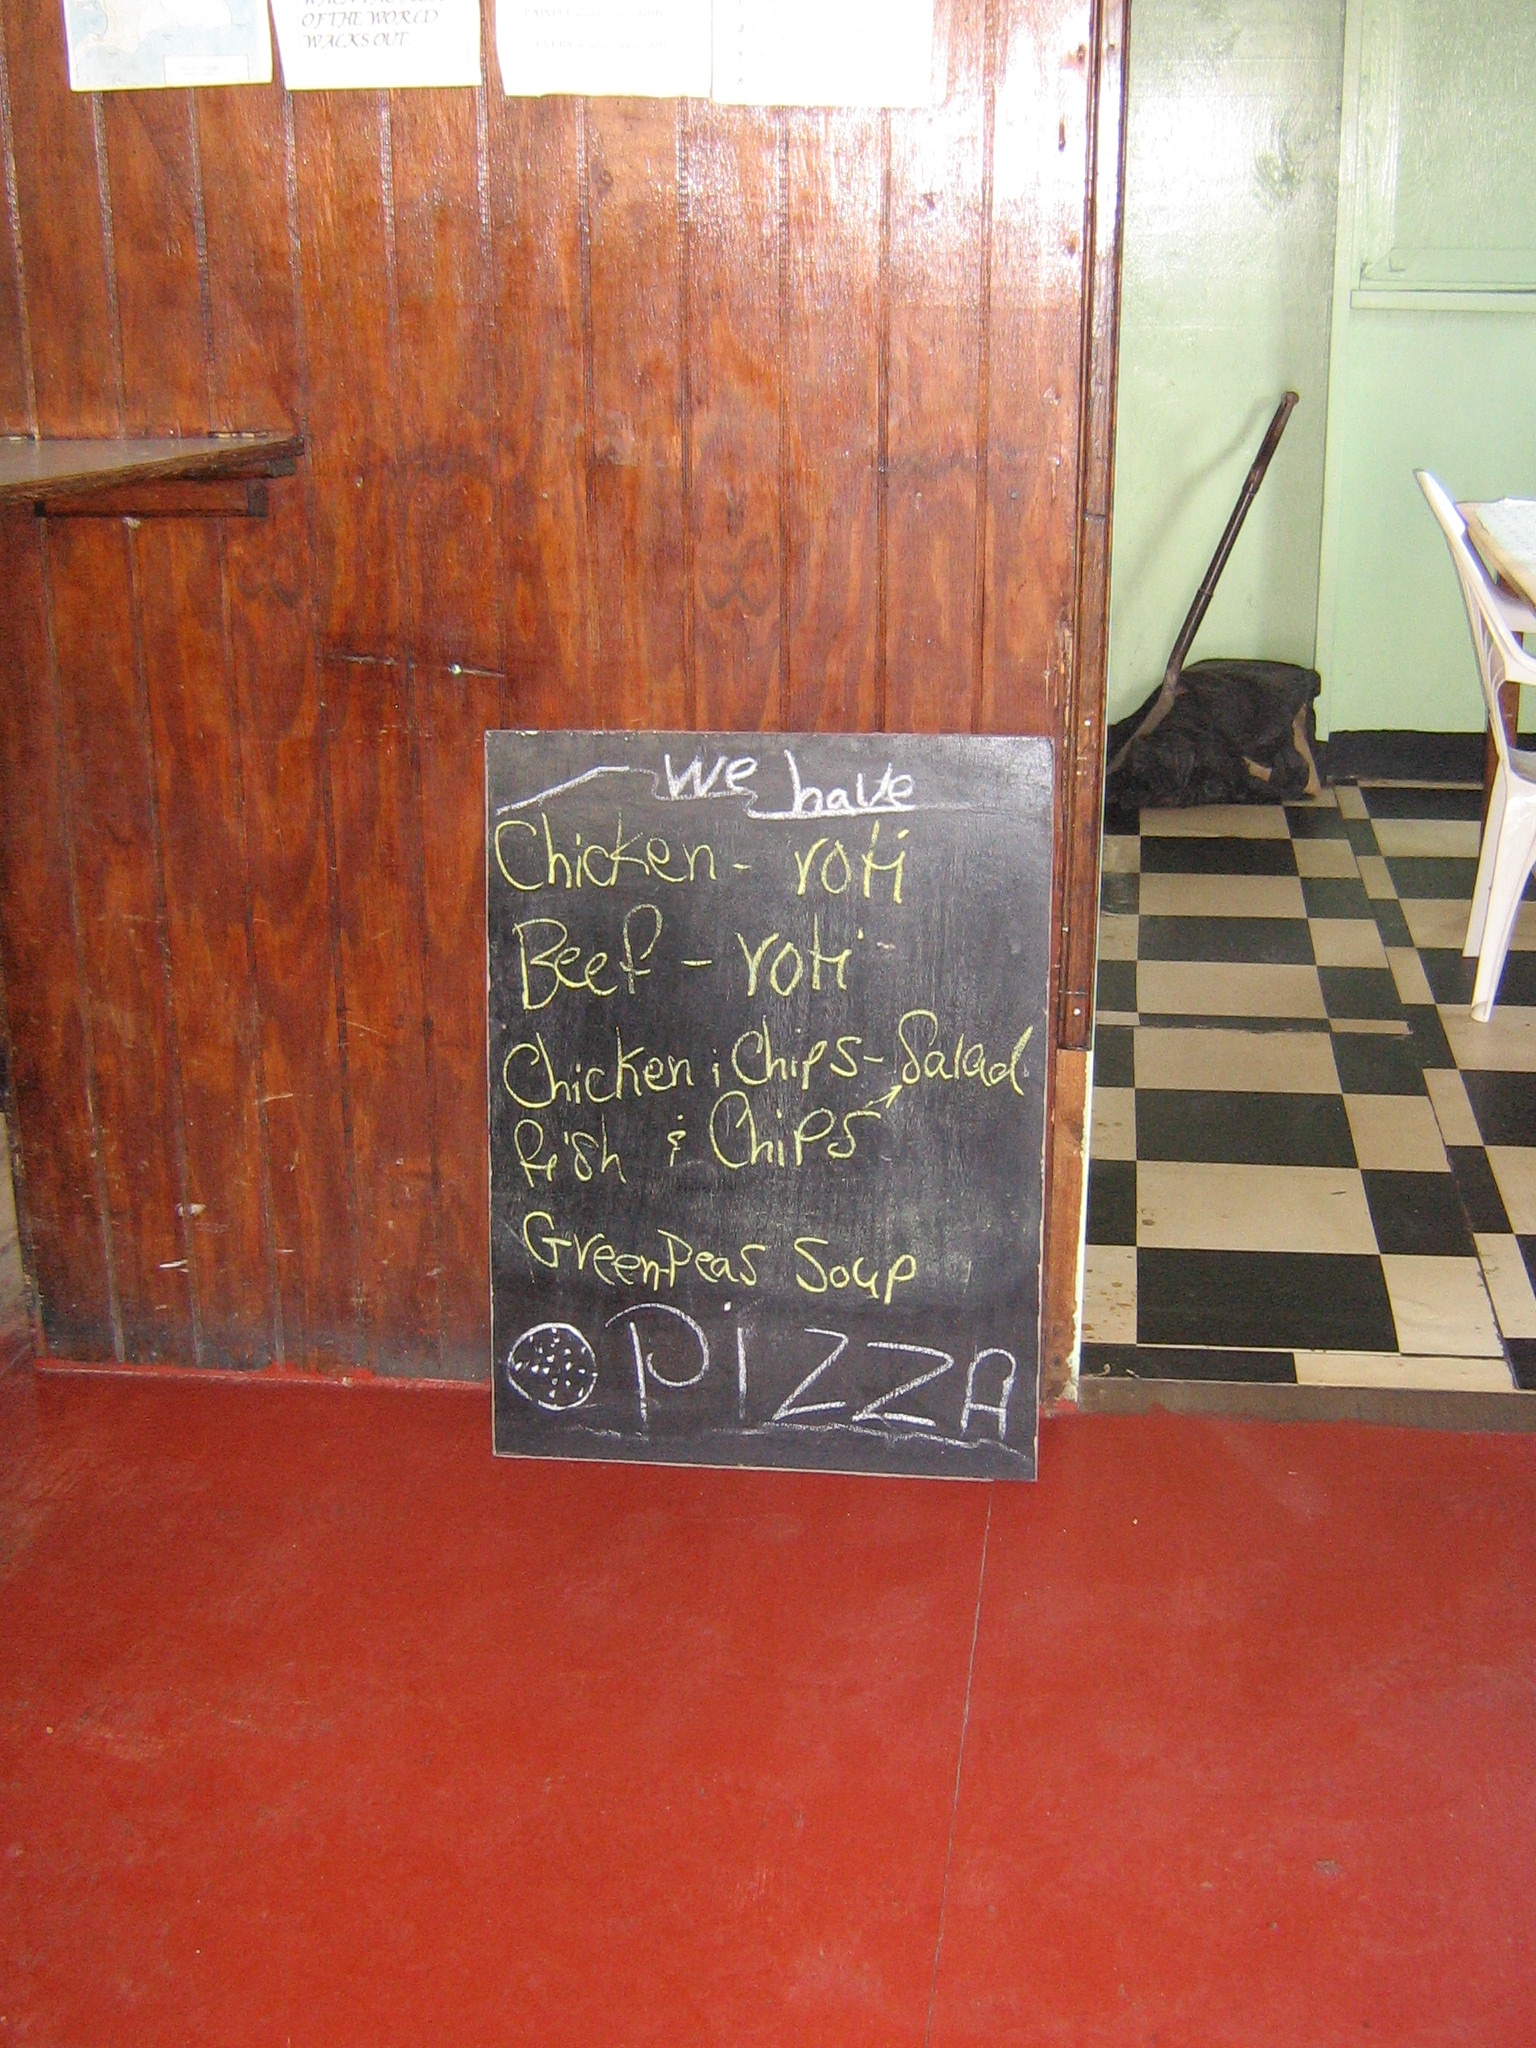 OF THE WORLD
WALKS OUT.
We have
Chicken - roti
Beef - roti
Chicken & Chips - Salad
fish & Chips
Green Peas Soup
PIZZA